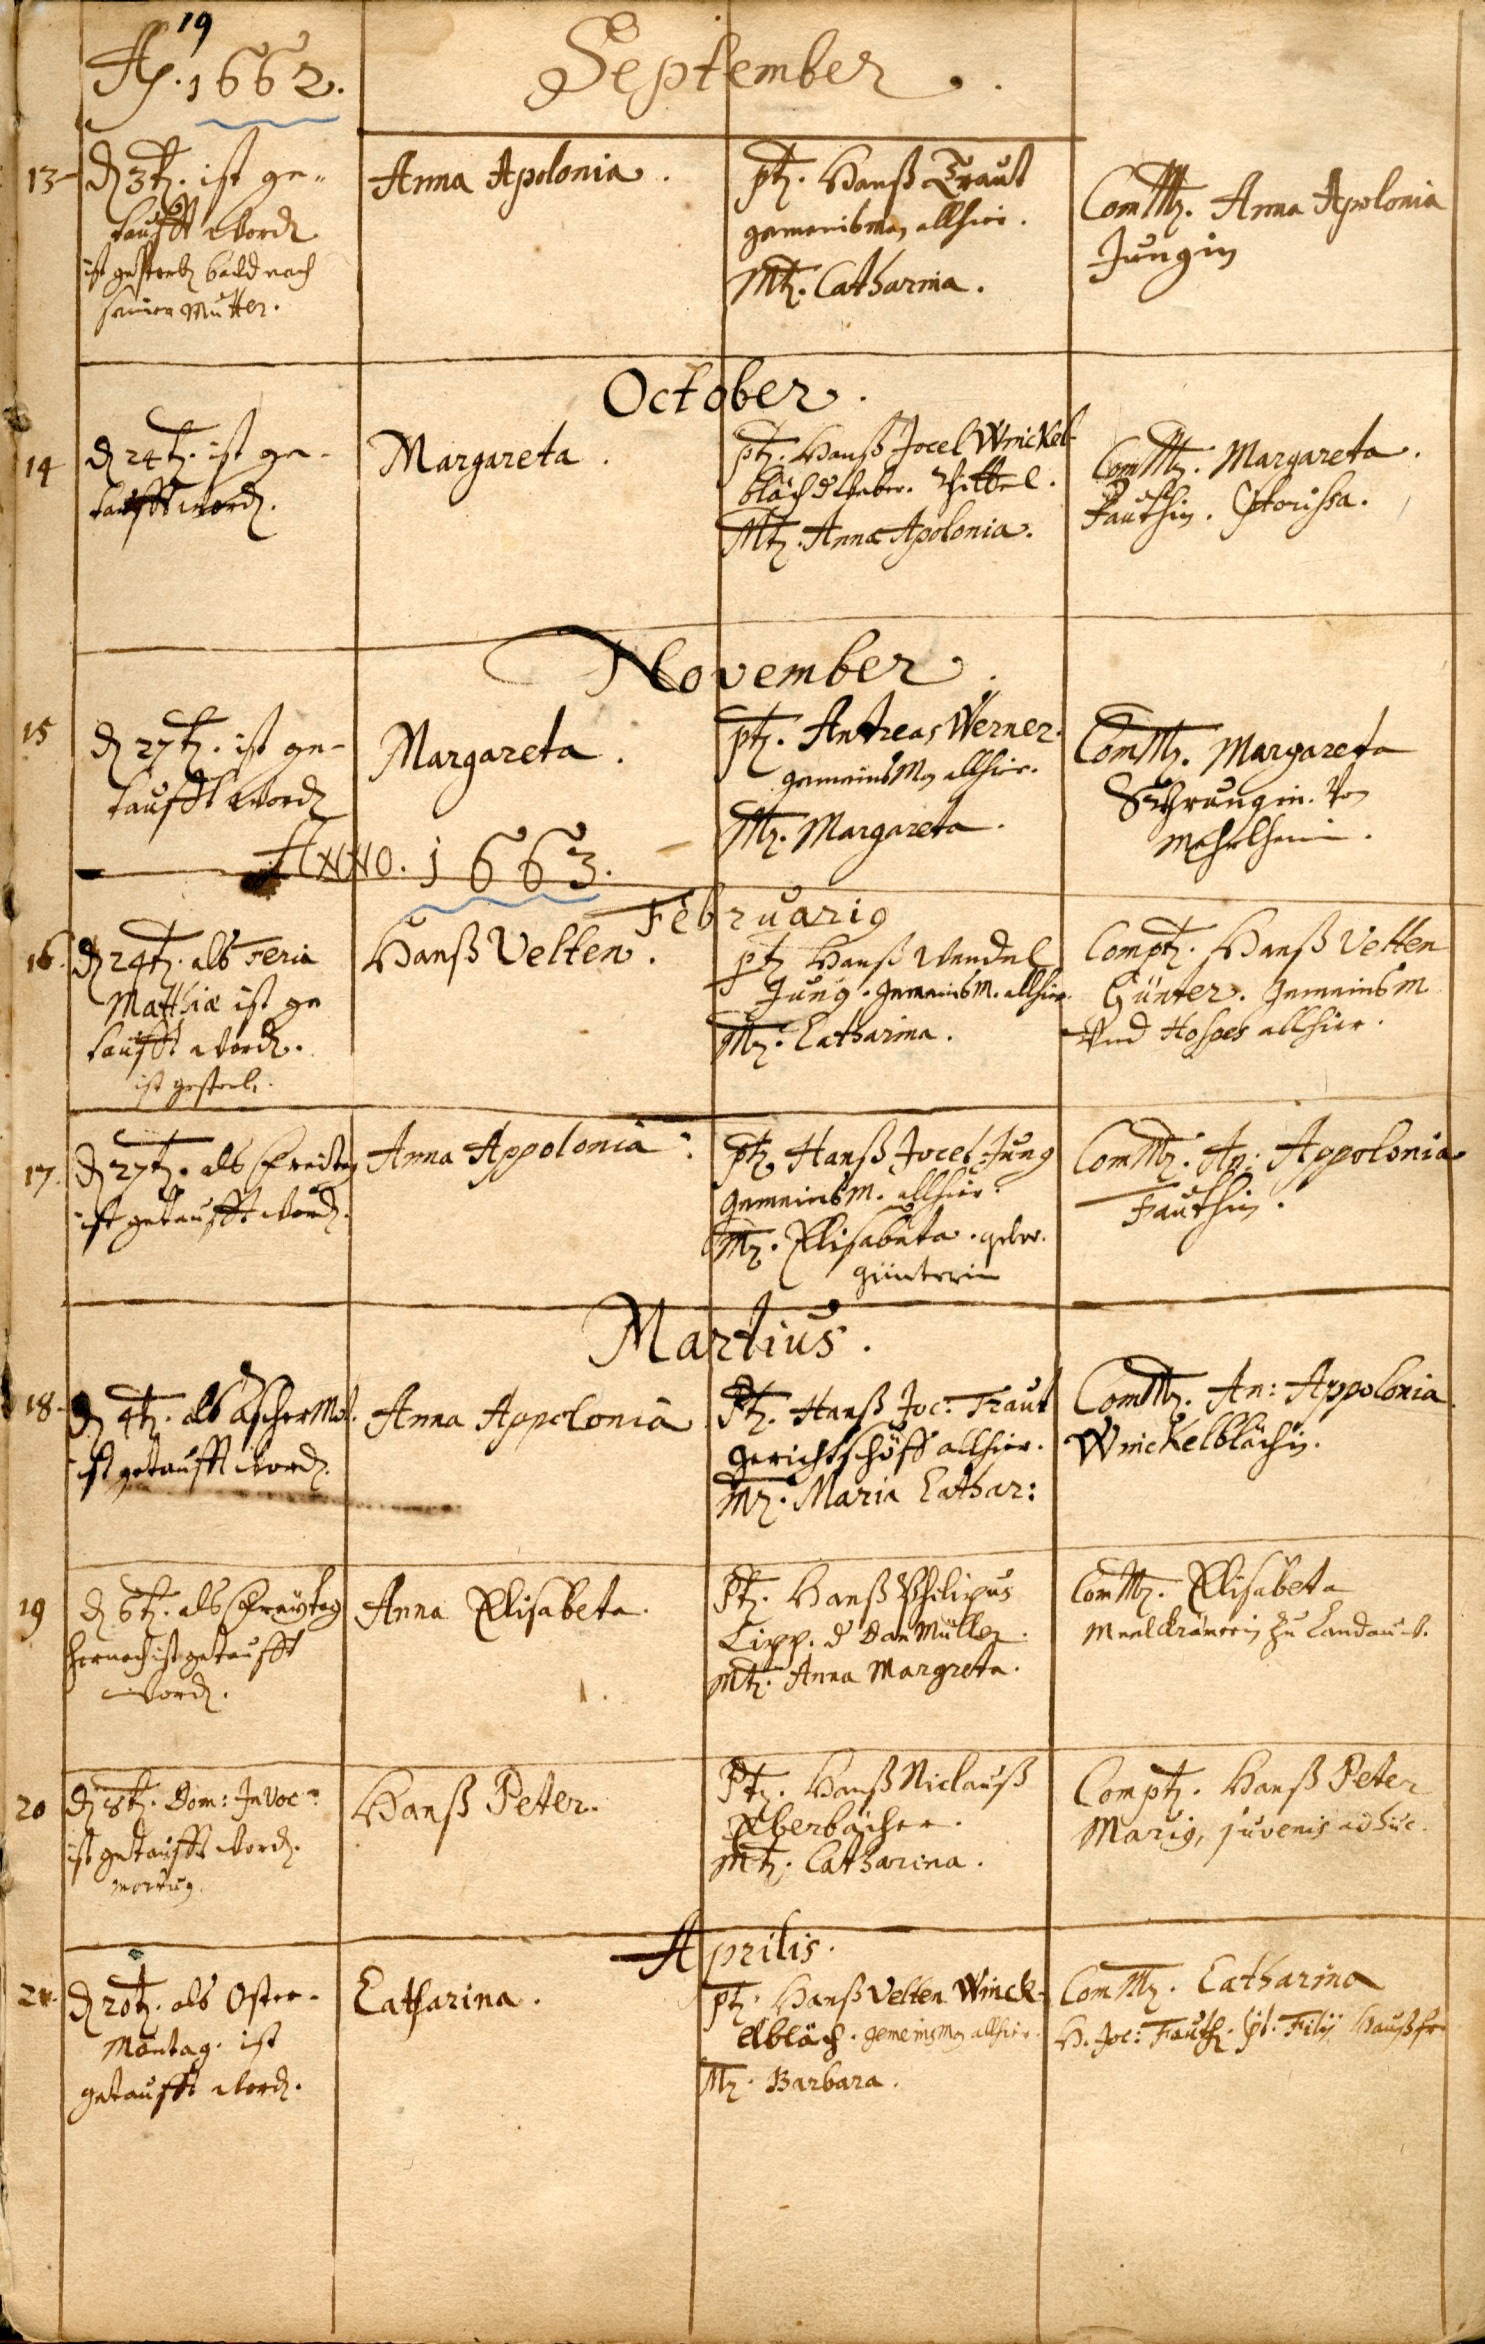 19
Ao. 1662.
September.
13
d 3t. ist ge-
taufft word
ist gestorb bald nach
seiner Mutter.
Anna Apolonia.
pt. Hanß Traut
gemeinsman allhier.
Mt. Catharina.
Com Mt. Anna Apolonia
Jungin
October.
14
d 24t. ist ge-
taufft word.
Margareta.
pt. Hanß Jocel Winckel-
bläch d
Mt. Anna Apolonia.
Com Mt. Margareta.
Fauthin.
November.
15
d 27t. ist ge-
taufft word
Margareta.
pt. Antreas Werner.
gemeinsMan allhier.
Mt. Margareta.
Com Mt. Margareta
Von
Anno. 1663.
Februarig
16.
d 24t. als Feria
Matthiæ ist ge
taufft word.
ist gestorb.
Hanß Velten.
pt Hanß Wendel
Jung. gemeinsM. allhier.
Mt. Catharina.
Com pt. Hanß Velten
Günter. gemeinsM
Vnd Hospes allhier.
17.
d 27t. als Freitag
ist getaufft word.
Anna Appolonia.
pt. Hanß Jocel Jung
gemeinsM. allhier.
Mt. Elisabeta. gebor.
günterin
Com Mt. An: Appolonia
Fauthin.
Martius.
18.
d 4t. als AscherMit.
ist getaufft word.
Anna Appolonia
Pt. Hanß Joc: Traut
gerichtschöff allhier.
Mt. Maria Cathar:
Com Mt. An: Appolonia
Winckelblächin.
19
d 6t. als Freytag
hernach ist getaufft
word.
Anna Elisabeta.
Pt. Hanß Philipus
Lipp. d Müller.
Mt. Anna Margreta.
Com Mt. Elisabeta
zu Landau.
20
d 8t. Dom: Invoc:
ist getaufft word.
mortug.
Hanß Peter.
Pt. Hanß Niclauß
Eberbächer.
Mt. Catharina.
Com pt. Hanß Peter
Marig, juvenis adhuc.
Aprilis.
21.
d 20t. als Oster-
Montag. ist
getaufft word.
Catharina.
pt. Hanß Velten Winck-
elbläch. gemeinsMan allhier.
Mt. Barbara.
Com Mt. Catharina
H. Joc: Fauth. Filij Haußfr